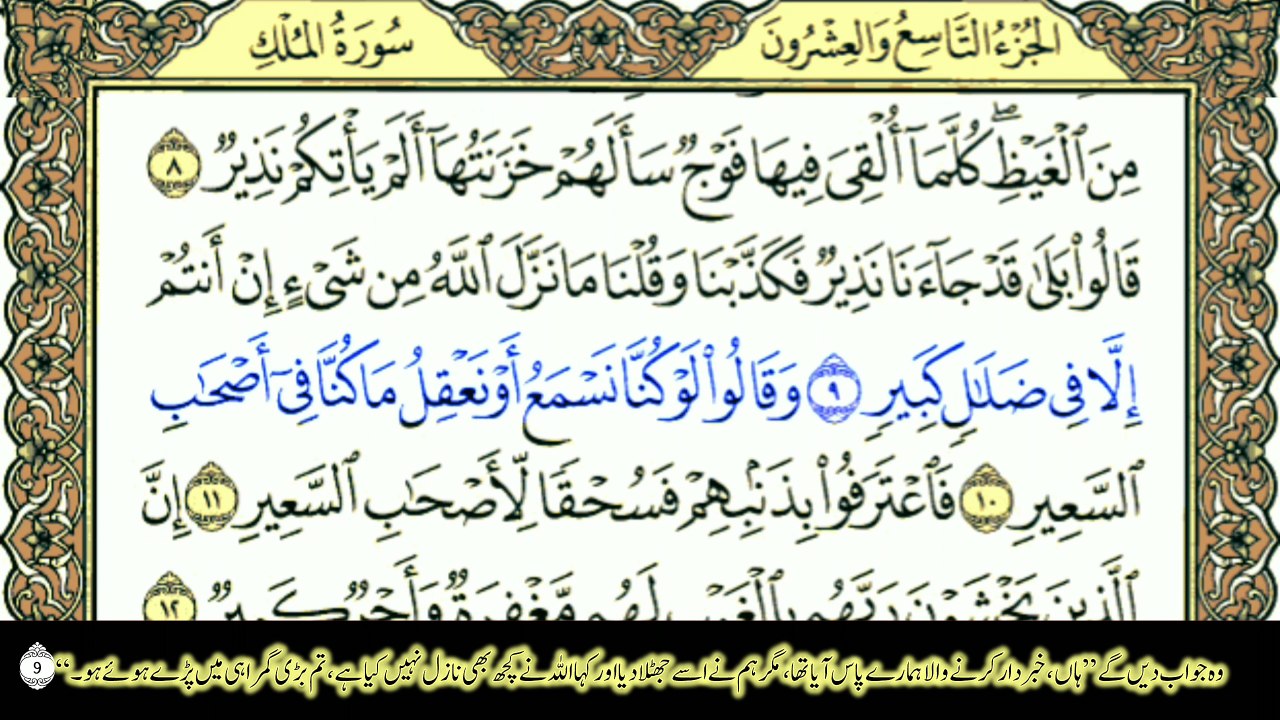 الجُزْءُ التَّاسِعُ وَالعِشْرُونَ سُورَةُ المُلْكِ
مِنَ ٱلْغَيْظِ ۖ كُلَّمَآ أُلْقِىَ فِيهَا فَوْجٌ سَأَلَهُمْ خَزَنَتُهَآ أَلَمْ يَأْتِكُمْ نَذِيرٌ ٨
قَالُوا۟ بَلَىٰ قَدْ جَآءَنَا نَذِيرٌ فَكَذَّبْنَا وَقُلْنَا مَا نَزَّلَ ٱللَّهُ مِن شَىْءٍ إِنْ أَنتُمْ
إِلَّا فِى ضَلَٰلٍ كَبِيرٍ ٩ وَقَالُوا۟ لَوْ كُنَّا نَسْمَعُ أَوْ نَعْقِلُ مَا كُنَّا فِىٓ أَصْحَٰبِ
ٱلسَّعِيرِ ١٠ فَٱعْتَرَفُوا۟ بِذَنۢبِهِمْ فَسُحْقًا لِّأَصْحَٰبِ ٱلسَّعِيرِ ١١ إِنَّ
ٱلَّذِينَ يَخْشَوْنَ رَبَّهُم بِٱلْغَيْبِ لَهُم مَّغْفِرَةٌ وَأَجْرٌ كَبِيرٌ ١٢
وہ جواب دیں گے ”ہاں، خبردار کرنے والا ہمارے پاس آیا تھا، مگر ہم نے اسے جھٹلا دیا اور کہا اللہ نے کچھ بھی نازل نہیں کیا ہے، تم بڑی گمراہی میں پڑے ہوئے ہو۔“ 9